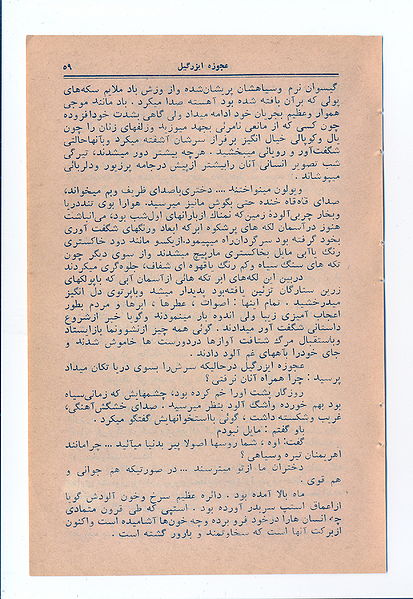 ۵۹ عجوزه ایزرگیل
گیسوان نرم وسیاهشان پریشان‌شده واز وزش باد ملایم سکه‌های
پولی که برآن بافته شده بود آهسته صدا میکرد . باد مانند موجی
هموار وعظیم بجریان خود ادامه میداد ولی گاهی بشدت خودافزوده
چون کسی که از مانعی نامرئی بجهد میوزید وزلفهای زنان را چون
یال وکوپالی خیال انگیز برفراز سرشان آشفته میکرد وبآنهاحالتی
شگفت‌آور و رویائی میبخشید . هرچه بیشتر دور میشدند، تیرگی
شب تصویر انسانی آنان رابیشتر ازپیش درجامه پرزیور ودلربائی
میپوشاند .
ویولون مینواختند .... دختری باصدای ظریف وبم میخواند،
صدای قاه‌قاه خنده حتی بگوش مانیز میرسید. هوارا بوی تنددریا
وبخار چربی‌آلوده زمین‌که نمناك ازبارانهای اول‌شب بود، می‌انباشت
هنوز درآسمان لکه های پرشکوه ابرکه ابعاد ورنگهای شگفت آوری
بخود گرفته بود سرگردان‌راه میپیمود.ازیکسو مانند دود خاکستری
رنگ باآبی مایل بخاکستری مارپیچ میشدند واز سوی دیگر چون
تکه های سنگ سیاه وکم رنگ یاقهوه ای شفاف، جلوه‌گری میکردند
دربین این لکه‌های ابر تکه هائی ازآسمان آبی که باپولکهای
زرین ستارگان تزئین یافته‌بود پدیدار میشد وباپرتوی دل انگیز
میدرخشید . تمام اینها : اصوات ، عطرها ، ابرها و مردم بطور
اعجاب آمیزی زیبا ولی اندوه بار مینمودند وگویا خبر ازشروع
داستانی شگفت آور میدادند . گوئی همه چیز ازنشوونما بازایستاد
وباستقبال مرگ شتافت آوازها دردورست ها خاموش شدند و
جای خودرا بآههای غم آلود دادند .
عجوزه ایزرگیل درحالیکه سرش‌را بسوی دریا تکان میداد
پرسید : چرا همراه آنان نرفتی ؟
روزگار پشت اورا خم کرده بود، چشمهایش که زمانی‌سیاه
بود بهم خورده واشگ آلود بنظر میرسید . صدای خشکش‌آهنگی،
غریب وشکسته داشت ، گوئی بااستخوانهایش گفتگو میکرد .
باو گفتم : مایل نبودم
گفت: اوه ، شما روسها اصولا پیر بدنیا میآئید ... چرامانند
اهریمنان تیره وسیاهی ؟
دختران ما ازتو میترسند ... در صورتیکه هم جوانی و
هم قوی .
ماه بالا آمده بود . دائره عظیم سرخ وخون آلودش گویا
ازاعماق استپ سربدر آورده بود . استپی که طی قرون متمادی
چه انسان هارا درخود فرو برده وچه خون‌ها آشامیده است واکنون
ازبرکت آنها است که سخاوتمند و بارور گشته است .